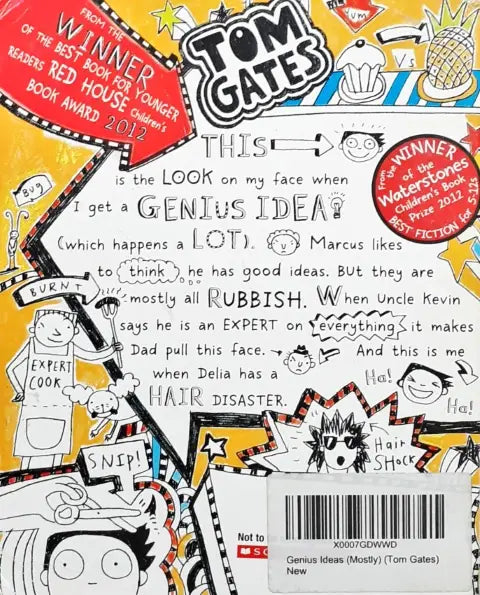 FROM THE
WINNER
OF THE BEST BOOK FOR YOUNGER
READERS RED HOUSE Children's
BOOK AWARD 2012
TOM
GATES
YUM
Vs
THIS
is the LOOK on my face when
I get a GENIUS IDEA!
(which happens a LOT). Marcus likes
to think he has good ideas. BUT they are
mostly all RUBBISH. When Uncle Kevin
says he is an EXPERT on everything it makes
Dad pull this face. And this is me
when Delia has a
HAIR DISASTER.
From the
WINNER
of the
Waterstones
Children's Book
Prize 2012
BEST FICTION for 5-12s
Bug
BURNT
EXPERT
COOK
Ha!
Ha!
SNIP!
Hair
SHOCK
Not to
X0007GDWWD
Genius Ideas (Mostly) (Tom Gates)
New